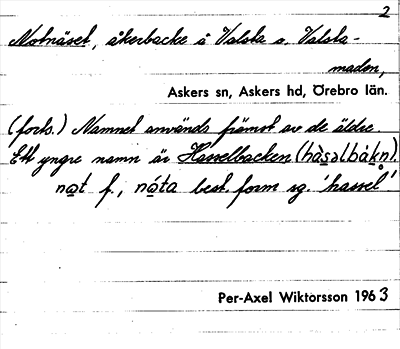 2
Notnäset, åkerbacke å Valsta o. Valsta-
maden,
Askers sn, Askers hd, Örebro län.
(forts.) Namnet används främst av de äldre.
Ett yngre namn är Hasselbacken (hàsəlbåkn).
not f., nóta best. form sg. 'hassel'
Per-Axel Wiktorsson 1963